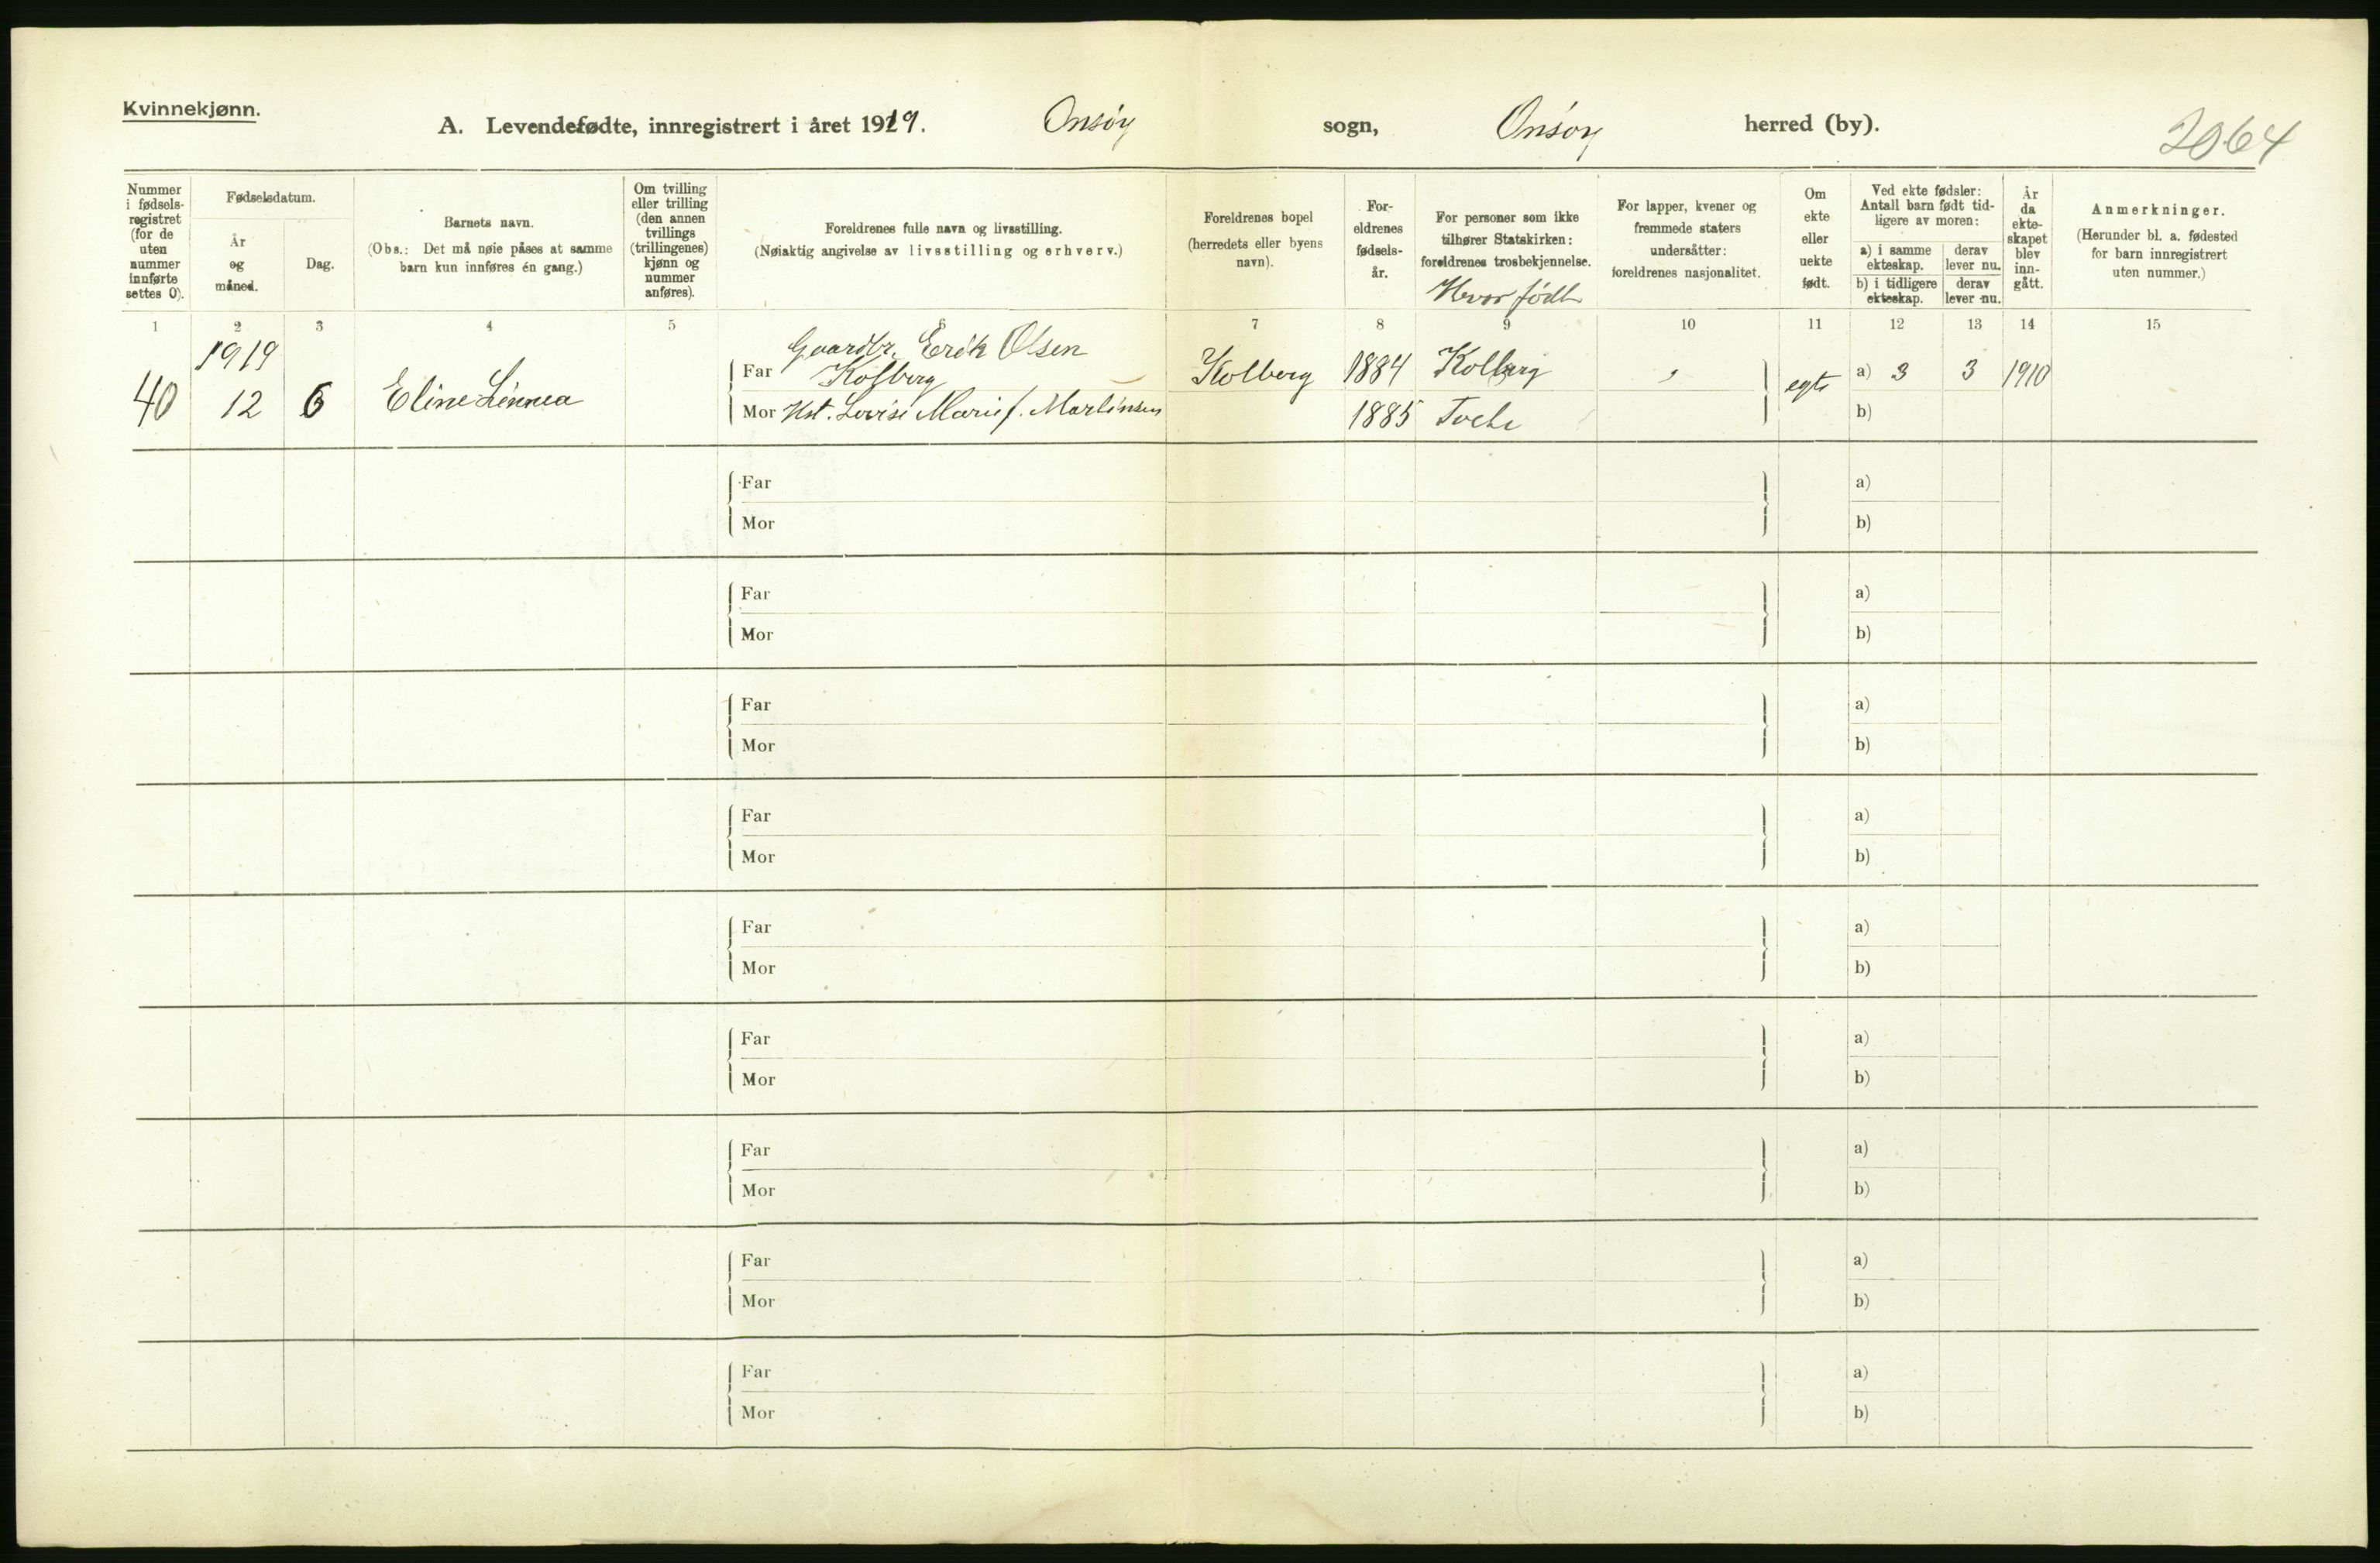 Kvinnekjønn.
A. Levendefødte, innregistrert i året 1919. Onsøy sogn, Onsøy herred (by).
2064
Nummer i fødsels-registret (for de uten nummer innførte settes 0).
Fødselsdatum.
År og måned.
Dag.
Barnets navn.
(Obs.: Det må nøie påses at samme barn kun innføres én gang.)
Om tvilling eller trilling (den annen tvillings (trillingenes) kjønn og nummer anføres).
Foreldrenes fulle navn og livsstilling.
(Nøiaktig angivelse av livsstilling og erhverv.)
Foreldrenes bopel (herredets eller byens navn).
For-eldrenes fødsels-år.
For personer som ikke tilhører Statskirken: foreldrenes trosbekjennelse.
Hvor født
For lapper, kvener og fremmede staters undersåtter: foreldrenes nasjonalitet.
Om ekte eller uekte født.
Ved ekte fødsler: Antall barn født tid-ligere av moren:
a) i samme ekteskap.
derav lever nu.
b) i tidligere ekteskap.
derav lever nu.
År da ekte-skapet blev inn-gått.
Anmerkninger.
(Herunder bl. a. fødested for barn innregistrert uten nummer.)
1 2 3 4 5 6 7 8 9 10 11 12 13 14 15
1919
Gaardbr. Erik Olsen
Far Kolberg Kolberg 1884 Kolberg a) 3 3 1910
40 12 6 Eline Linnea egte
Mor Hst. Lovise Marie f. Martinsen 1885 b)
Far a)
Mor b)
Far a)
Mor b)
Far a)
Mor b)
Far a)
Mor b)
Far a)
Mor b)
Far a)
Mor b)
Far a)
Mor b)
Far a)
Mor b)
Far a)
Mor b)